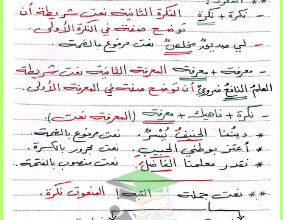 - نكرة + نكرة   النكرة الثانية نعت شريطة أن
توضح صفة في النكرة الأولى
- لي صديقٌ مخلصٌ. نعت مرفوع بالضمة
- معرفة + معرفة   المعرفة الثانية نعت شريطة
العلم النافع ضروري أن توضح صفة في المعرفة الأولى.
- نكرة + معرفة (المعرفة نعت)
** ديننا الحنيف يُسرٌ. نعت مرفوع بالضمة
* أعتز بوطني الحبيبِ. نعت مجرور بالكسرة
** نقدر معلمنا الفاضلَ. نعت منصوب بالفتحة
- نعت جملة   المنعوت نكرة.